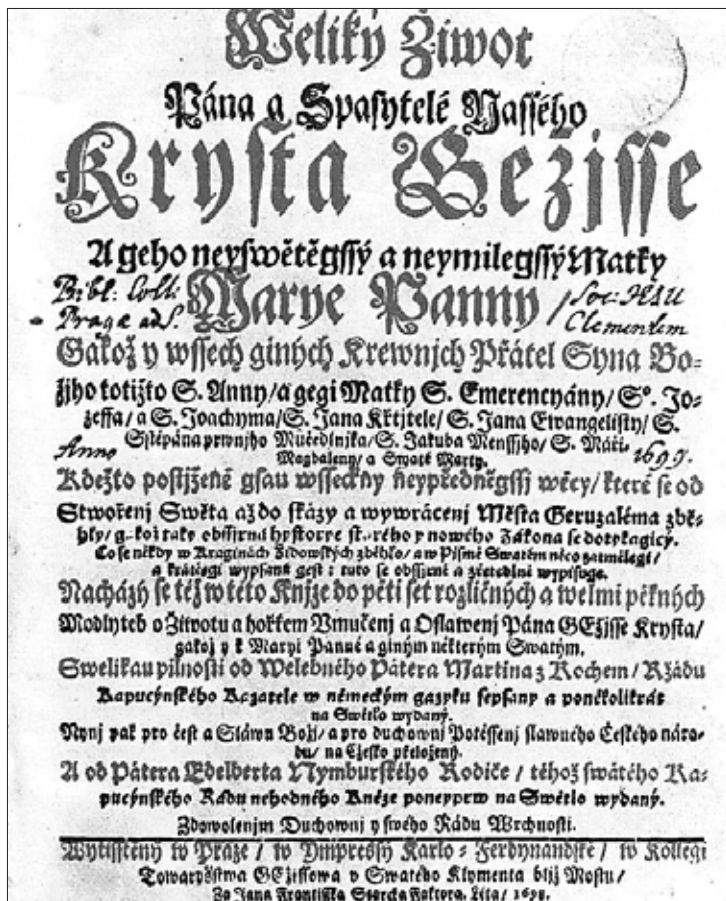 Weliký Žiwot
Pána a Spasytelé Nassého
Krysta Gežisse
A geho neyswětěgssý a neymilegssý Matky
Bibl: Coll: Marye Panny / Soc: JESU
Pragæ ad S. Clementem
Gakož y wssech giných Krewnjch Přátel Syna Bo-
žjho totižto S. Anny / a gegi Matky S. Emerencyány / So. Jo-
zeffa / a S. Joachyma / S. Jana Křtjtele / S. Jana Ewangelisty / S.
Sstěpána prwnjho Mučedlnjka / S. Jakuba Menssjho / S. Máří
Anno Magdaleny / a Swaté Marty. 1699.
Kdežto postjžené gsau wsseckny neypředněgssj wěcy / které se od
Stwořenj Swěta až do skázy a wywrácenj Města Geruzaléma zbě-
hly / gakož také obssjrná hystorye starého y nowého Zákona se dotýkagicý.
Co se někdy w Kraginách Židowských zběhlo / a w Pjsmě Swatém něco zatmělegi /
a krátcegi wypsané gest : tuto se obssjrně a zřetedlně wypisuge.
Nacházý se též w této Knjze do pěti set rozličných a welmi pěkných
Modlyteb o Žiwotu a hořkém Vmučenj a Oslawenj Pána GEžisse Krysta /
gakož y k Maryi Panně a giným některým Swatým.
S welikau pilností od Welebného Pátera Martina z Kochem / Ržádu
Kapucýnského Kazatele w německým gazyku sepsany a poněkolikrát
na Swětlo wydaný.
Nynj pak pro čest a Sláwu Božj / a pro duchownj Potěssenj slawného Českého náro-
du / na Cžesko přeložený.
A od Pátera Edelberta Nymburského Rodiče / téhož swátého Ka-
pucýnského Řádu nehodného Kněze poneyprw na Swětlo wydaný.
Zdowolenjm Duchownj y swého Řádu Wrchnosti.
Wytisstěný w Praze / w Ympressý Karlo-Ferdynandské / w Kollegi
Towaryšstwa GEžissowa v Swatého Klymenta blíž Mostu /
Za Jana Frantisska Storcka Faktora, Léta / 1698.